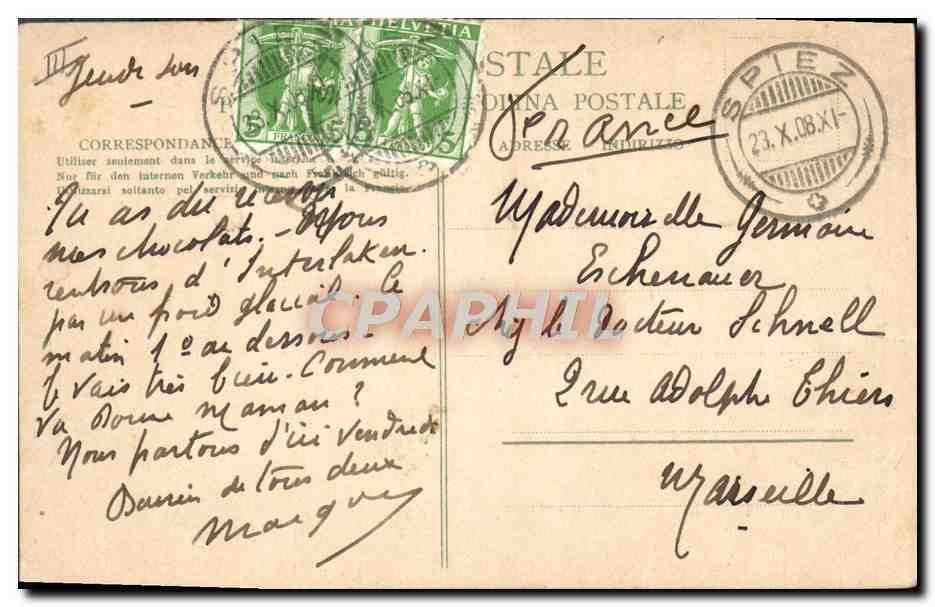 III
Jeudi soir
HELVETIA
STALE
POSTALE
CORRESPONDANCE
ADRESSE INDIRIZZO
Utiliser seulement dans le service
Nur für den internen Verkehr und nach Frankreich gültig.
soltanto pel servizio la Francia
SPIEZ
23.X.08.XI-
France
Tu as dû recevoir
nos chocolats. - Nous
rentrons d'Interlaken
par un froid glacial. Ce
matin 1º au dessous -
Je vais très bien. Comment
va Bonne Maman?
Nous partons d'ici vendredi
de tous deux
Mademoiselle Germaine
Eschenauer
le Docteur Schnell
2 rue Adolphe Thiers
Marseille
CPAPHIL